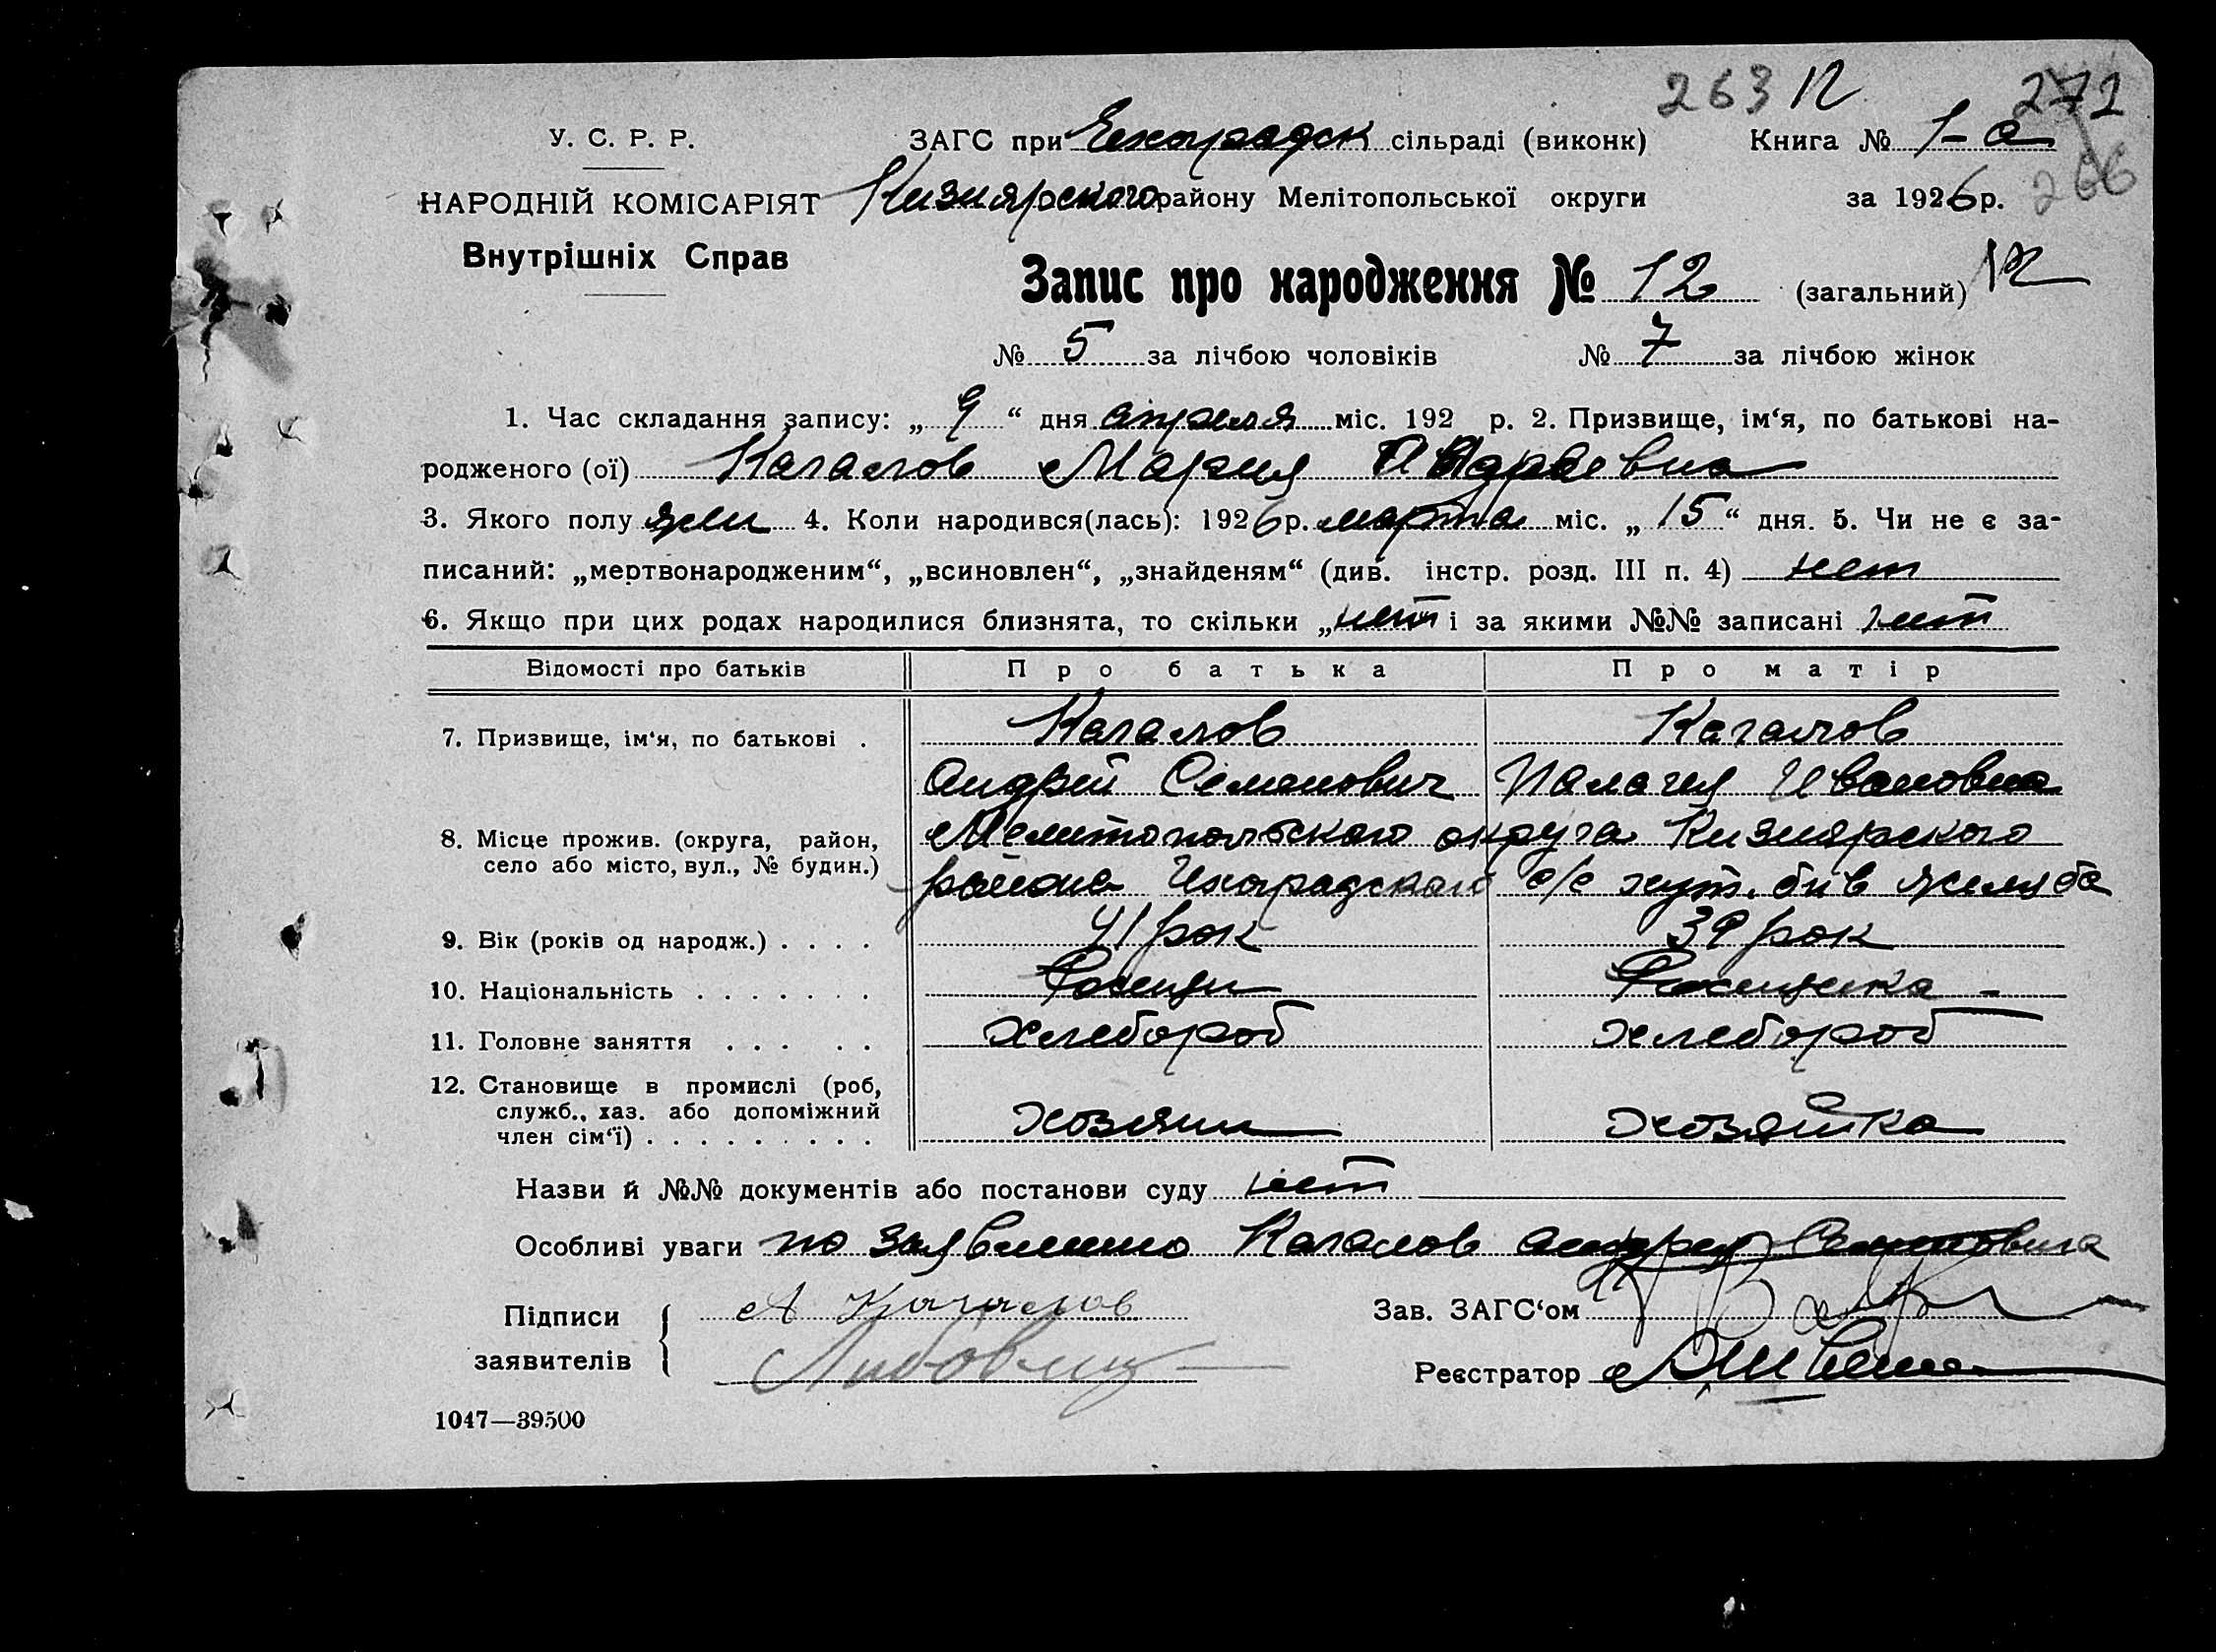 263 12 272
У. С. Р. Р. ЗАГС при сільраді (виконк) Книга № 1-а
266
НАРОДНІЙ КОМІСАРІЯТ Кизиярского району Мелітопольської округи за 1926 р.
Внутрішніх Справ
Запис про народження № 12 (загальний) 12
№ 5 за лічбою чоловіків № 7 за лічбою жінок
1. Час складання запису: „ 9 “ дня апреля міс. 192 р. 2. Призвище, ім‘я, по батькові на-
родженого (ої) Кагамов Мария
3. Якого полу жен 4. Коли народився(лась): 1926 р. марта міс. „ 15 “ дня. 5. Чи не є за-
писаний: „мертвонародженим“, „всиновлен“, „знайденям“ (див. інстр. розд. III п. 4) нет
6. Якщо при цих родах народилися близнята, то скільки „нет і за якими №№ записані нет
Відомості про батьків Про батька Про матір
7. Призвище, ім‘я, по батькові . Кагамов Кагамов
Андрей Семенович Палагия Ивановна
8. Місце прожив. (округа, район, Мелитопольского округа Кизиярского
село або місто, вул., № будин.) района с/с хут.
9. Вік (років од народж.) . . . . 41 рок 39 рок
10. Національність . . . . . . .
11. Головне заняття . . . . . хлебороб хлебороб
12. Становище в промислі (роб,
служб., хаз. або допоміжний хозяин хозяйка
член сім‘ї) . . . . . . . . .
Назви й №№ документів або постанови суду нет
Особливі уваги по заявлению Кагамов Андрея Семеновича
Підписи А Кагамов Зав. ЗАГС‘ом
заявителів Реєстратор
1047—39500